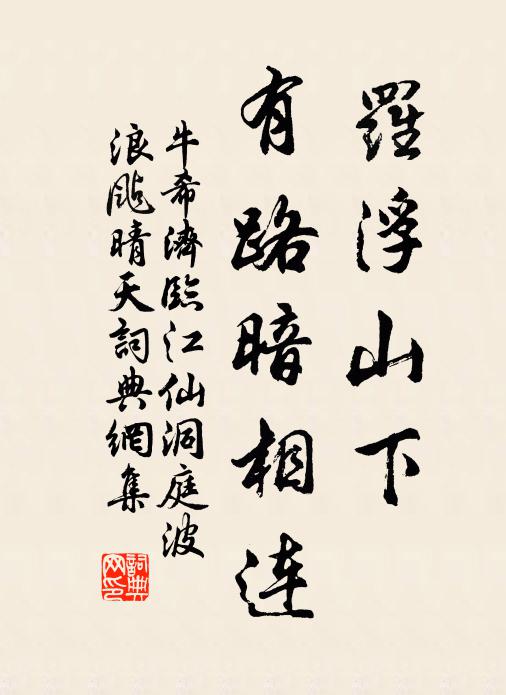 羅浮山下
有路暗相連
牛希濟臨江仙洞庭波
浪颭晴天詞典網集
詞典网印